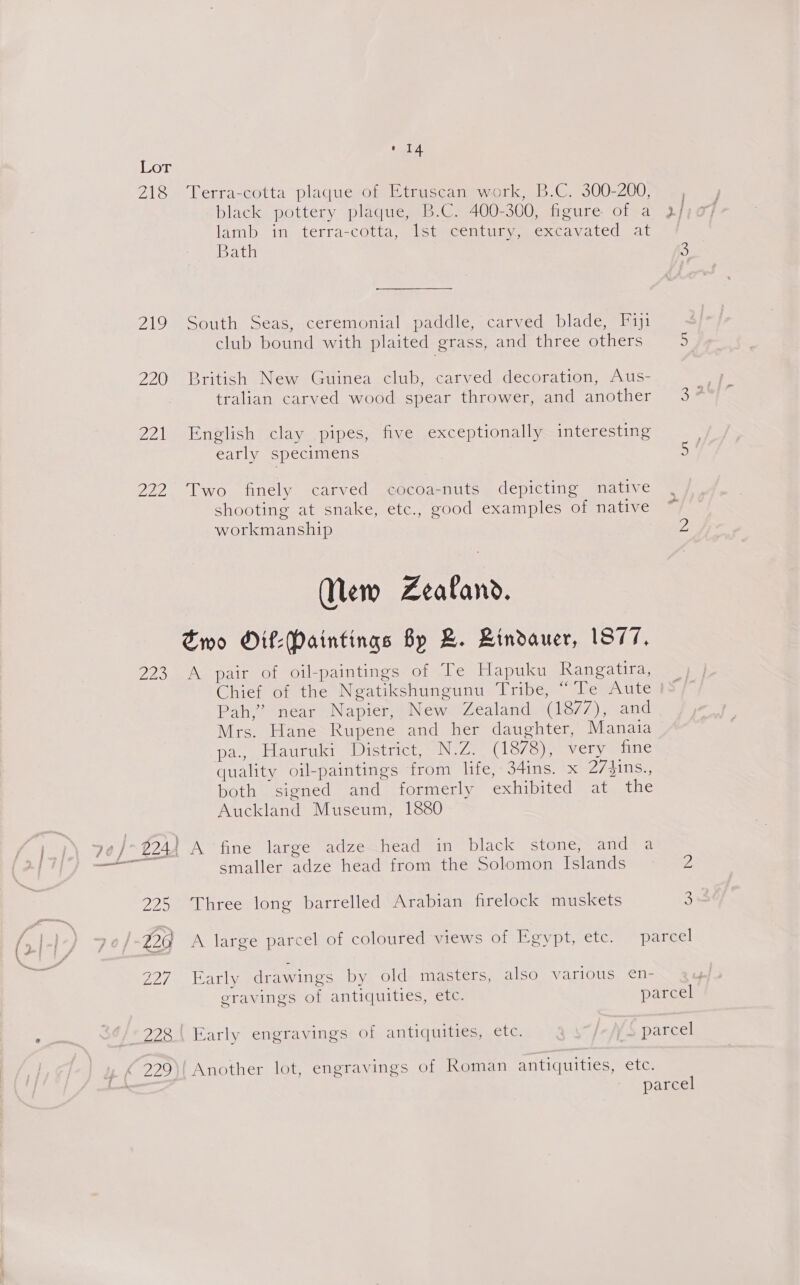 14
LOT
218 Terra-cotta plaque of Etruscan work, B.C. 300-200,
black pottery plaque, B.C. 400-300, figure of a
lamb in terra-cotta, 1st century, excavated at
Bath 3
219 South Seas, ceremonial paddle, carved blade, Fiji
club bound with plaited grass, and three others 5
220 British New Guinea club, carved decoration, Aus-
tralian carved wood spear thrower, and another 3
221 English clay pipes, five exceptionally interesting
early specimens 5
222 Two finely carved cocoa-nuts depicting native
shooting at snake, etc., good examples of native
workmanship 2
New Zealand.
Two Oil-Paintings by L. Lindauer, 1877.
223 A pair of oil-paintings of Te Hapuku Rangatira,
Chief of the Ngatikshungunu Tribe, “Te Aute
Pah,” near Napier, New Zealand (1877), and
Mrs. Hane Rupene and her daughter, Manaia
pa., Hauruki District, N.Z. (1878), very fine
quality oil-paintings from life, 34ins. x 27½ins.,
both signed and formerly exhibited at the
Auckland Museum, 1880
224 A fine large adze head in black stone, and a
smaller adze head from the Solomon Islands 2
225 Three long barrelled Arabian firelock muskets 3
226 A large parcel of coloured views of Egypt, etc. parcel
227 Early drawings by old masters, also various en-
gravings of antiquities, etc. parcel
228 Early engravings of antiquities, etc. parcel
229 Another lot, engravings of Roman antiquities, etc.
parcel